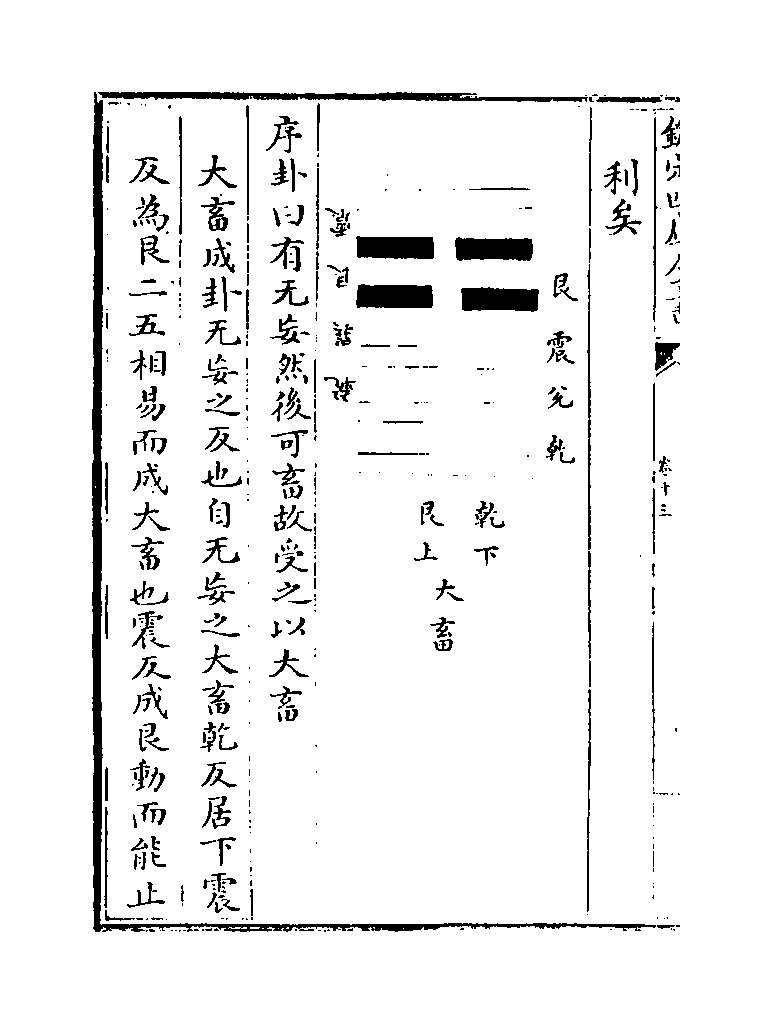 欽定四庫全書
卷十三
利矣
艮震兌乾
乾下
艮上
大畜
震艮兌乾
序卦曰有无妄然後可畜故受之以大畜
大畜成卦无妄之反也自无妄之大畜乾反居下震
反為艮二五相易而成大畜也震反成艮動而能止